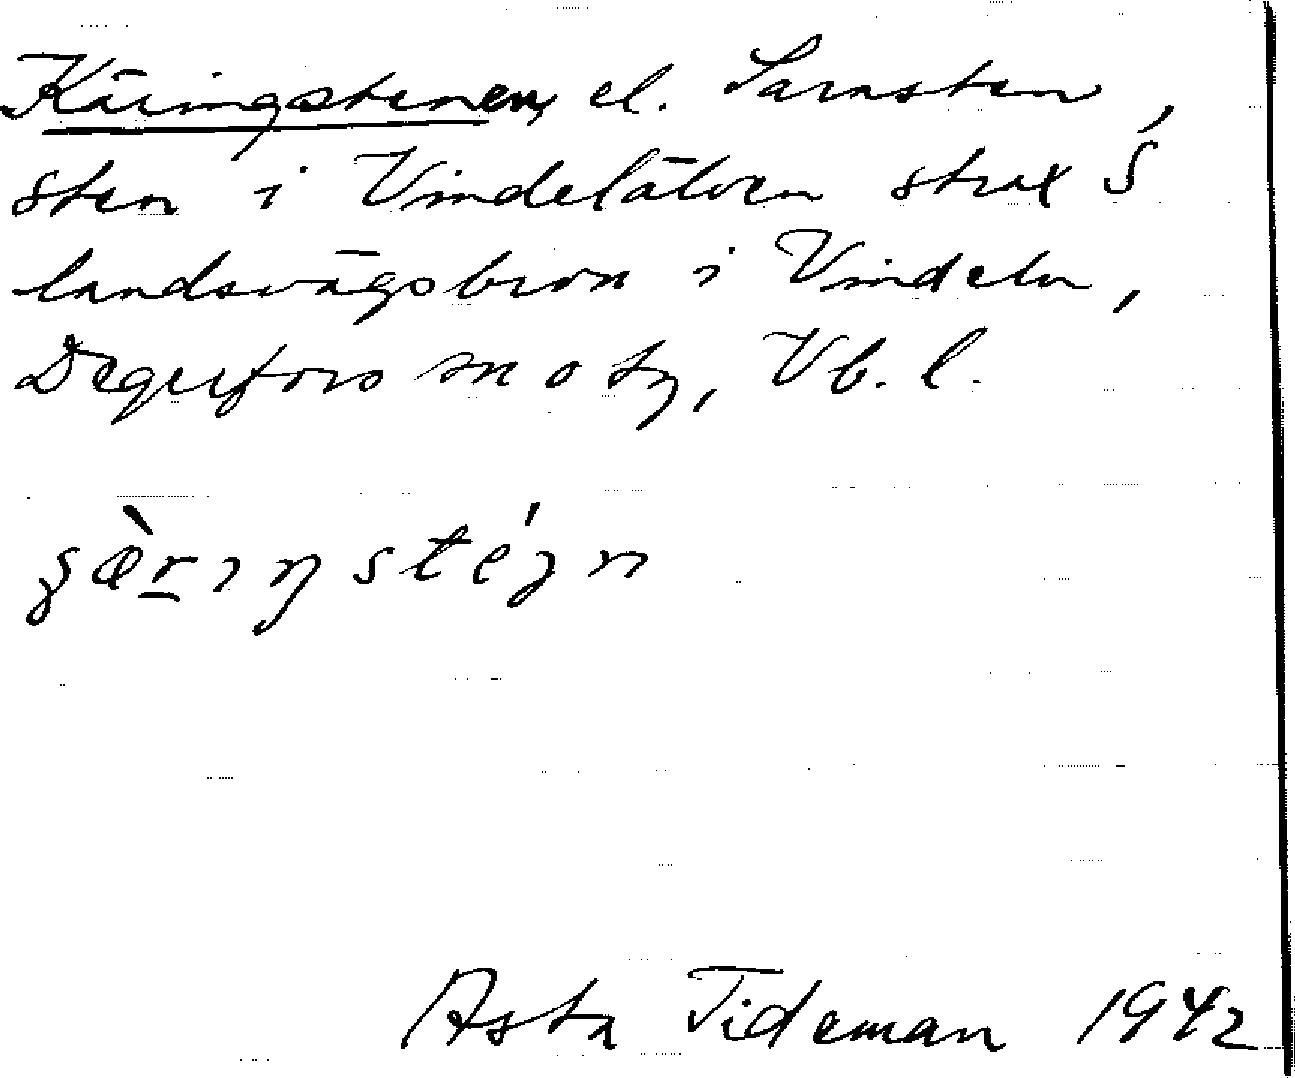 Käringstenen, el. Larnsten,
sten i Vindelälven strax S
landsvägsbron i Vindeln,
Degerfors sn o tg, Vb. l.
Asta Tideman 1942